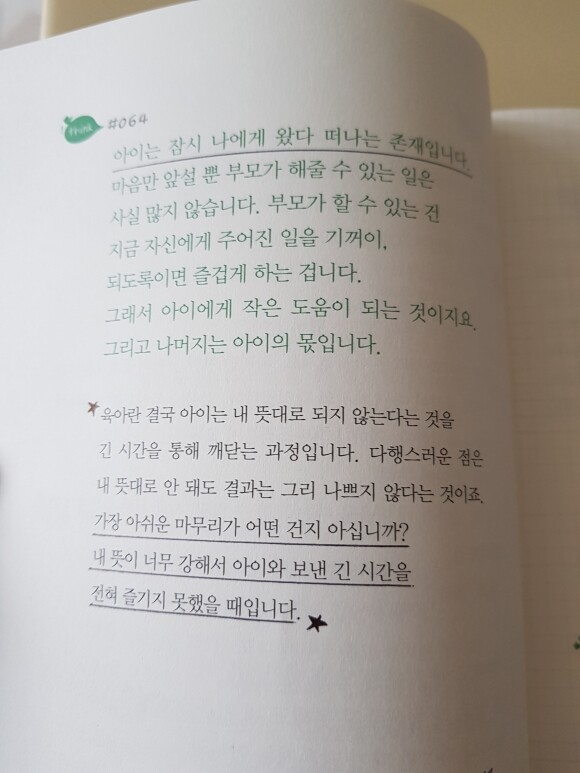 think #064
아이는 잠시 나에게 왔다 떠나는 존재입니다.
마음만 앞설 뿐 부모가 해줄 수 있는 일은
사실 많지 않습니다. 부모가 할 수 있는 건
지금 자신에게 주어진 일을 기꺼이,
되도록이면 즐겁게 하는 겁니다.
그래서 아이에게 작은 도움이 되는 것이지요.
그리고 나머지는 아이의 몫입니다.
육아란 결국 아이는 내 뜻대로 되지 않는다는 것을
긴 시간을 통해 깨닫는 과정입니다. 다행스러운 점은
내 뜻대로 안 돼도 결과는 그리 나쁘지 않다는 것이죠.
가장 아쉬운 마무리가 어떤 건지 아십니까?
내 뜻이 너무 강해서 아이와 보낸 긴 시간을
전혀 즐기지 못했을 때입니다.